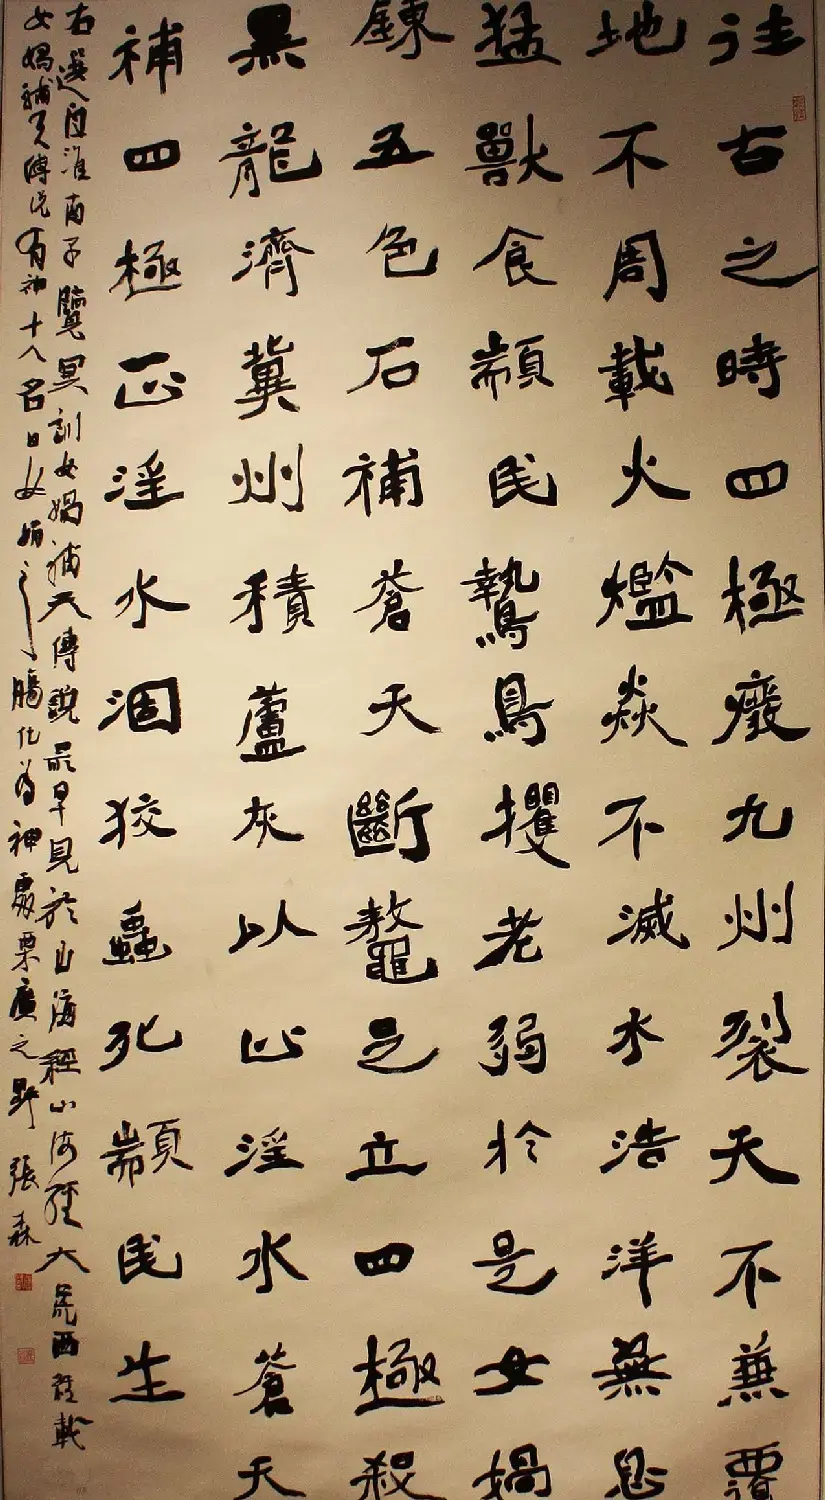 往古之時四極廢九州裂天不兼覆
地不周載火爁焱不滅水浩洋無息
猛獸食顓民鷙鳥攫老弱於是女媧
鍊五色石補蒼天斷鼇足立四極殺
黑龍濟冀州積蘆灰以止淫水蒼天
補四極正淫水涸狡蟲死顓民生
右選自淮南子覽冥訓女媧補天傳說最早見於山海經山海經大荒西經載
女媧補天傳說有神十人名曰女媧之腸化為神處栗廣之野張森